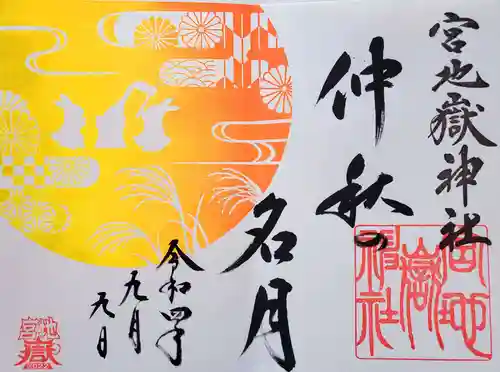 宮地嶽神社
仲秋の
名月
令和四年
九月
九日
宮地嶽神社
宮地
嶽
2022